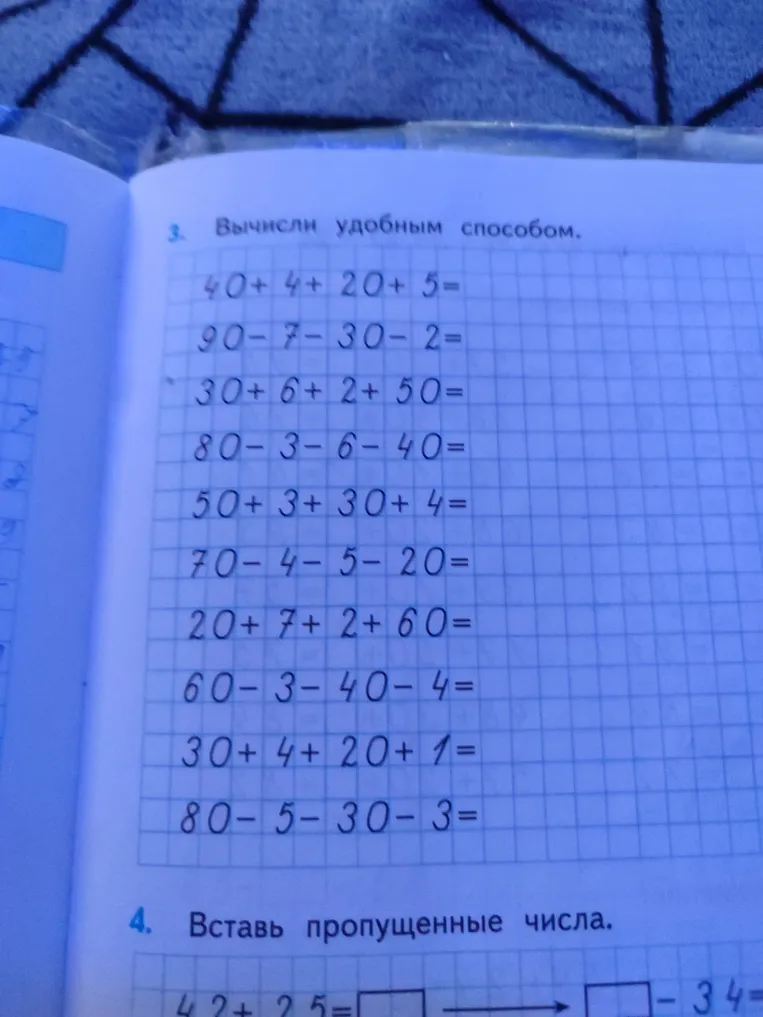 3. Вычисли удобным способом.
40+ 4+ 20+ 5=
90- 7- 30- 2=
30+ 6+ 2+ 50=
80- 3- 6- 40=
50+ 3+ 30+ 4=
70- 4- 5- 20=
20+ 7+ 2+ 60=
60- 3- 40- 4=
30+ 4+ 20+ 1=
80- 5- 30- 3=
4. Вставь пропущенные числа.
42+ 25= - 34=